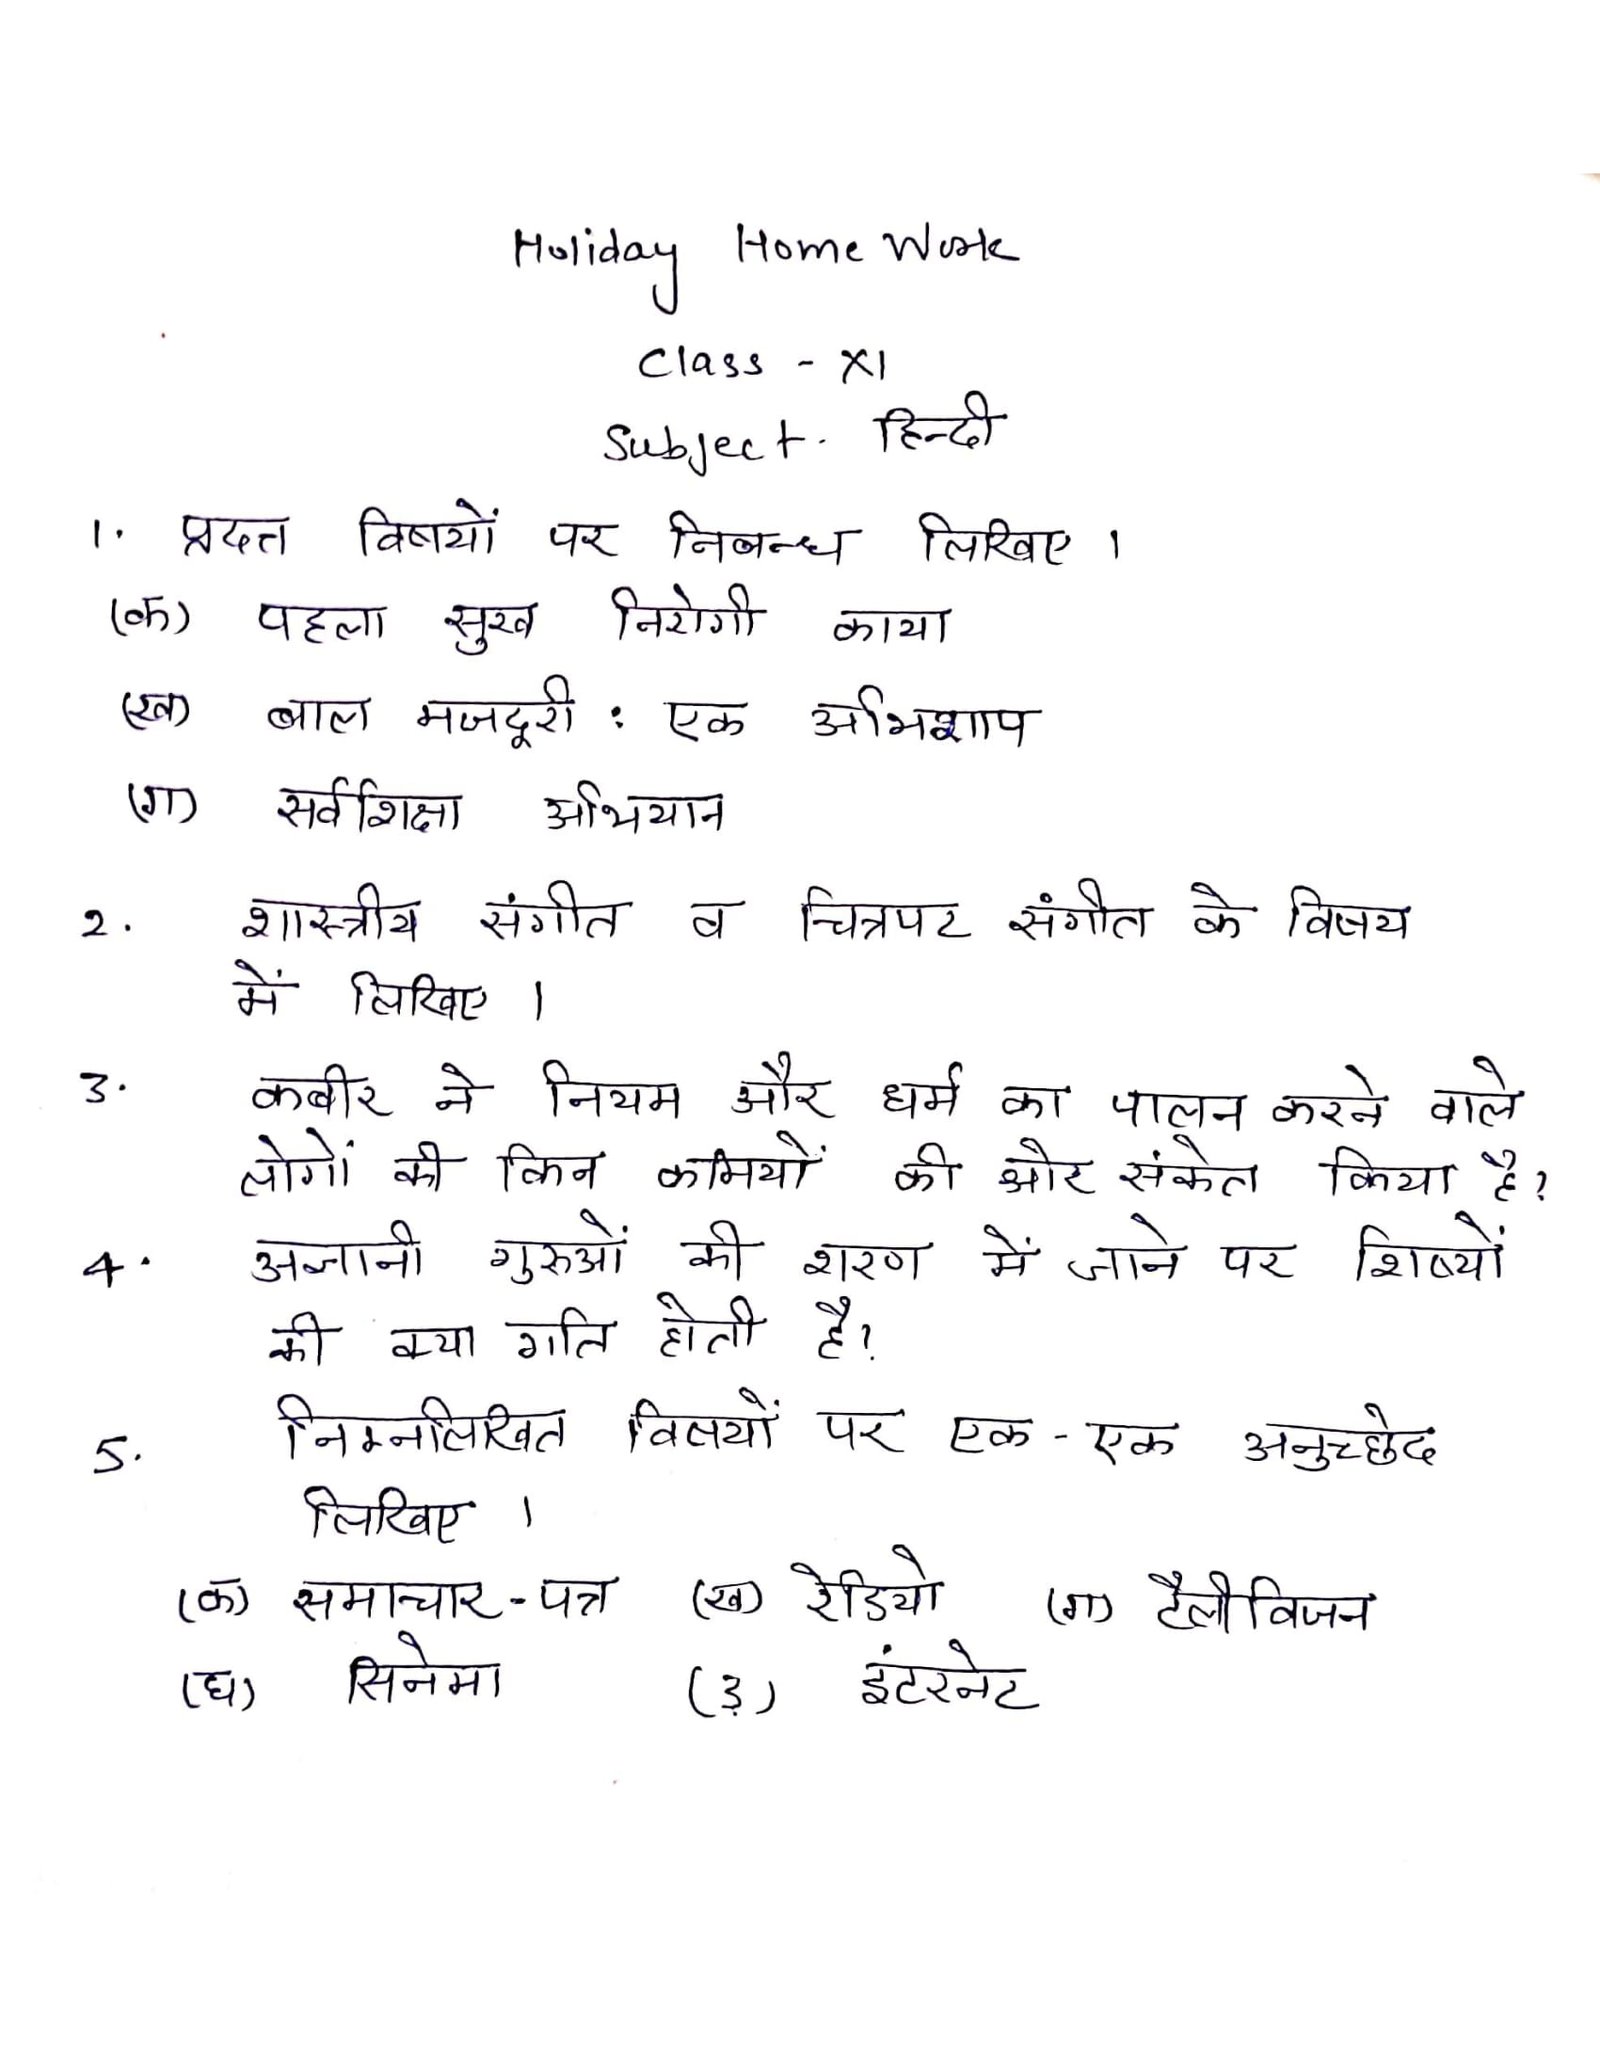 Holiday Home Work
Class - XI
Subject. हिन्दी
1. प्रदत्त विषयों पर निबन्ध लिखिए ।
(क) पहला सुख निरोगी काया
(ख) बाल मजदूरी : एक अभिशाप
(ग) सर्वशिक्षा अभियान
2. शास्त्रीय संगीत व चित्रपट संगीत के विषय
में लिखिए ।
3. कबीर ने नियम और धर्म का पालन करने वाले
लोगों की किन कमियों की ओर संकेत किया है?
4. अज्ञानी गुरुओं की शरण में जाने पर शिष्यों
की क्या गति होती है?
5. निम्नलिखित विषयों पर एक - एक अनुच्छेद
लिखिए ।
(क) समाचार - पत्र (ख) रेडियो (ग) टैलीविजन
(घ) सिनेमा (ड़) इंटरनेट